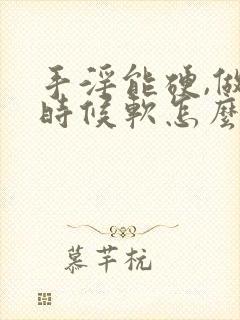 手淫能硬,做
時候軟怎麼
慕芊杭